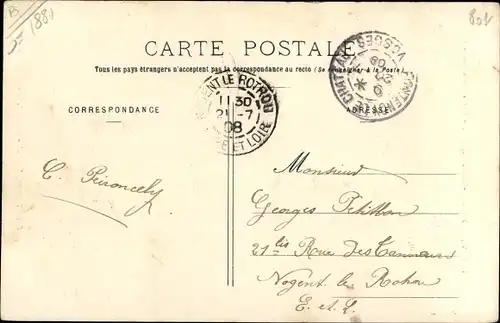 B
1881
801
CARTE POSTALE
Tous les pays étrangers n'acceptent pas la correspondance au recto (Se renseigner à la Poste)
NOGENT LE ROTROU
11 30
21 -7
08
EURE ET LOIR
FONTENOY LE CHATEAU
VOSGES
CORRESPONDANCE
ADRESSE
C. Peironcely
Monsieur
Georges
21 bis Rue des Tanneurs
Nogent le Rotrou
E. et L.